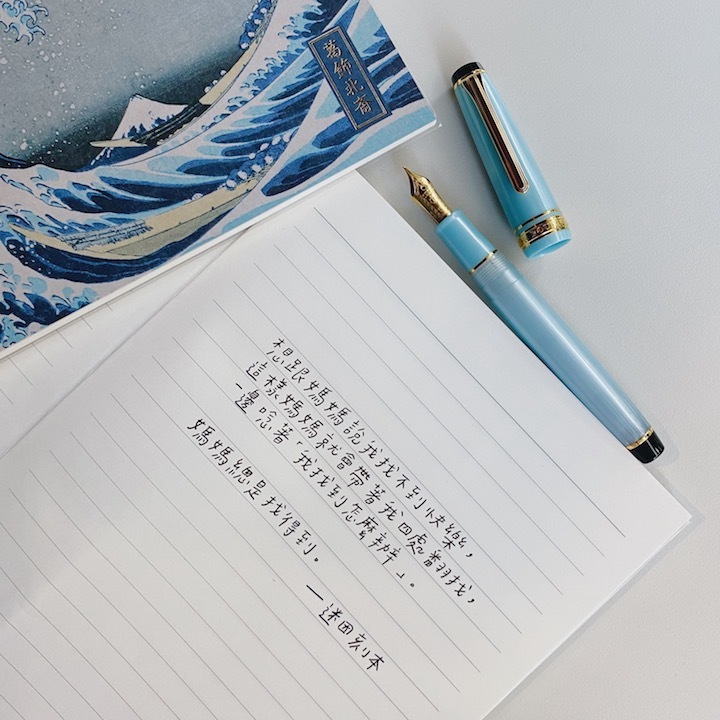 葛飾北斎
想跟媽媽說我找不到快樂，
這樣媽媽就會帶著我四處翻找，
一邊唸著「我找到怎麼辦」。
媽媽總是找得到。
—迷因刻本